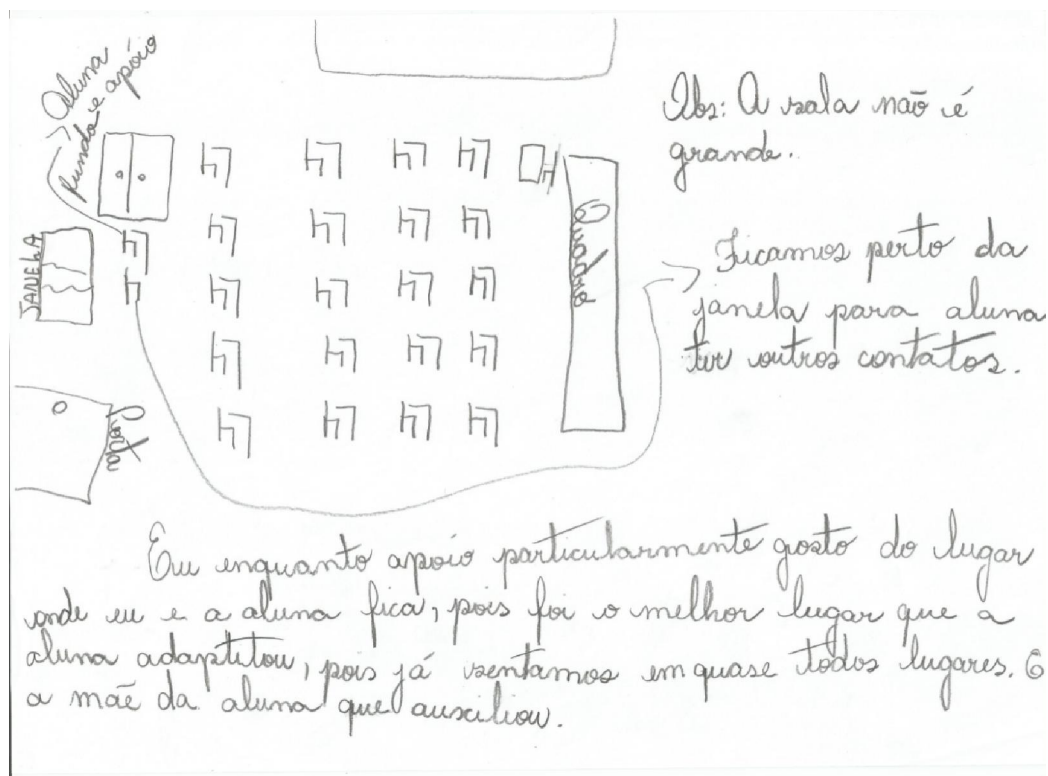 Aluna
fundo e apóio
JANELA
Porta
Quadro
Obs: A sala não é
grande.
Ficamos perto da
janela para aluna
ter outros contatos.
Eu enquanto apoio particularmente gosto do lugar
onde eu e a aluna fica, pois foi o melhor lugar que a
aluna adaptitou, pois já sentamos em quase todos lugares. E
a mãe da aluna que auxiliou.